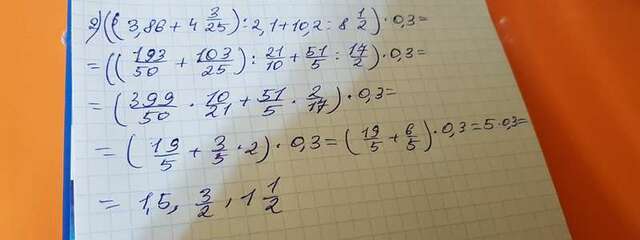 2) ((3,86 + 4 3/25) : 2,1 + 10,2 : 8 1/2) · 0,3 =
= ((193/50 + 103/25) : 21/10 + 51/5 : 17/2) · 0,3 =
= (399/50 · 10/21 + 51/5 · 2/17) · 0,3 =
= (19/5 + 3/5 · 2) · 0,3 = (19/5 + 6/5) · 0,3 = 5 · 0,3 =
= 1,5, 3/2, 1 1/2